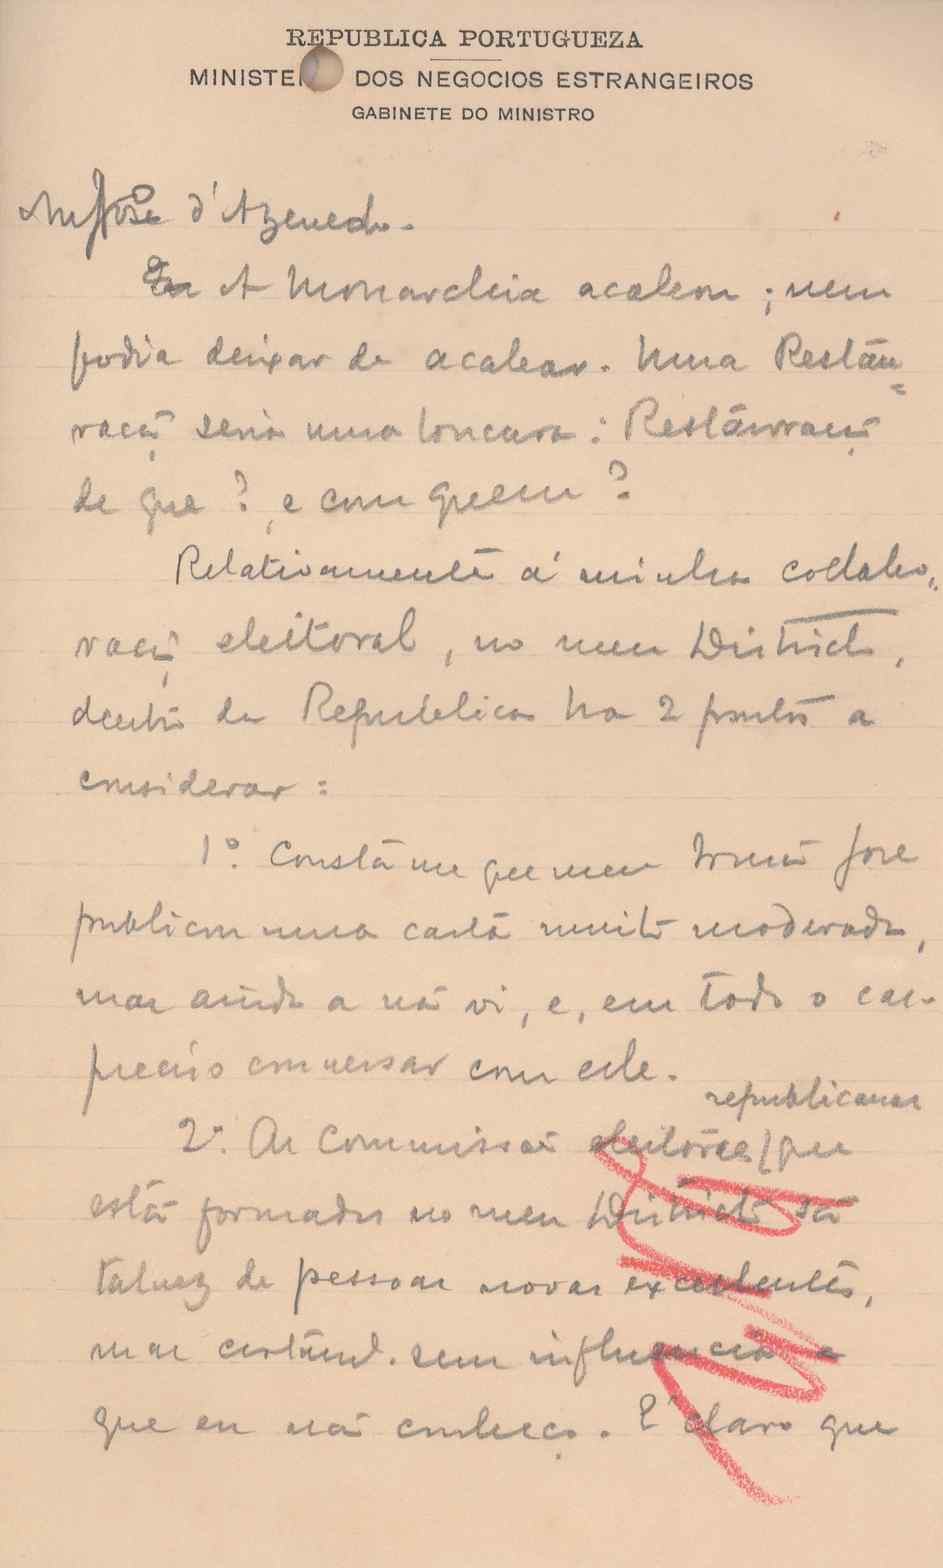 REPUBLICA PORTUGUEZA
MINISTE DOS NEGOCIOS ESTRANGEIROS
GABINETE DO MINISTRO
José d'Azevedo.
A Monarchia acabou; nem
podia deixar de acabar. Uma Restau=
ração seria uma loucura: Restauração
de que? e com quem?
Relativamente á minha collabo,,
ração eleitoral, no meu Districto,
dentro da Republica ha 2 pontos a
considerar:
1º. Consta me que meu Irmão José
publicou uma carta muito moderada,
mas ainda a não vi, e, em todo o caso
preciso conversar com elle.
republicanas
2º. As Commissões eleitoraes que
estão formadas no meu Districto são
talvez de pessoas novas excellentes,
mas certamte. sem influencia e
que eu não conheço. E' claro que